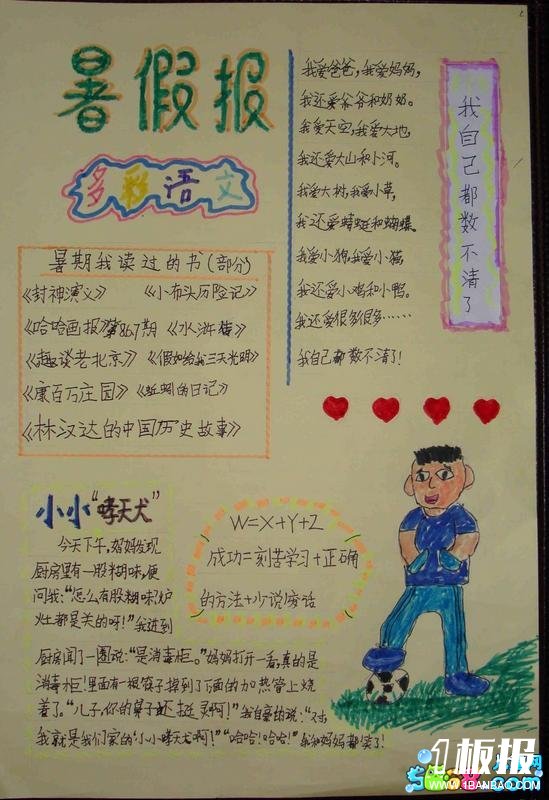 暑假报
多彩语文
暑期我读过的书(部分)
《封神演义》 《小布头历险记》
《哈哈画报》第867期 《水浒传》
《趣谈老北京》 《假如给我三天光明》
《康百万庄园》 《蚯蚓的日记》
《林汉达的中国历史故事》
我爱爸爸,我爱妈妈,
我还爱爷爷和奶奶。
我爱天空,我爱大地,
我还爱大山和小河。
我爱大树,我爱小草,
我还爱蜻蜓和蝴蝶。
我爱小狗,我爱小猫
我还爱小鸡和小鸭。
我还爱很多很多……
我自己都数不清了!
我自己都数不清了
小小“哮天犬”
今天下午,妈妈发现
厨房里有一股糊味,便
问我:“怎么有股糊味?炉
灶都是关的呀!”我进到
厨房闻了一圈说:“是消毒柜。”妈妈打开一看,真的是
消毒柜!里面有一根筷子掉到了下面的加热管上烧
着了。“儿子,你的鼻子还挺灵啊!”我自豪的说:“对
我就是我们家的‘小小哮天犬’啊!”“哈哈!哈哈!”我和妈妈都笑了!
W=X+Y+Z
成功=刻苦学习+正确
的方法+少说废话
1板报
WWW.1BANBAO.COM